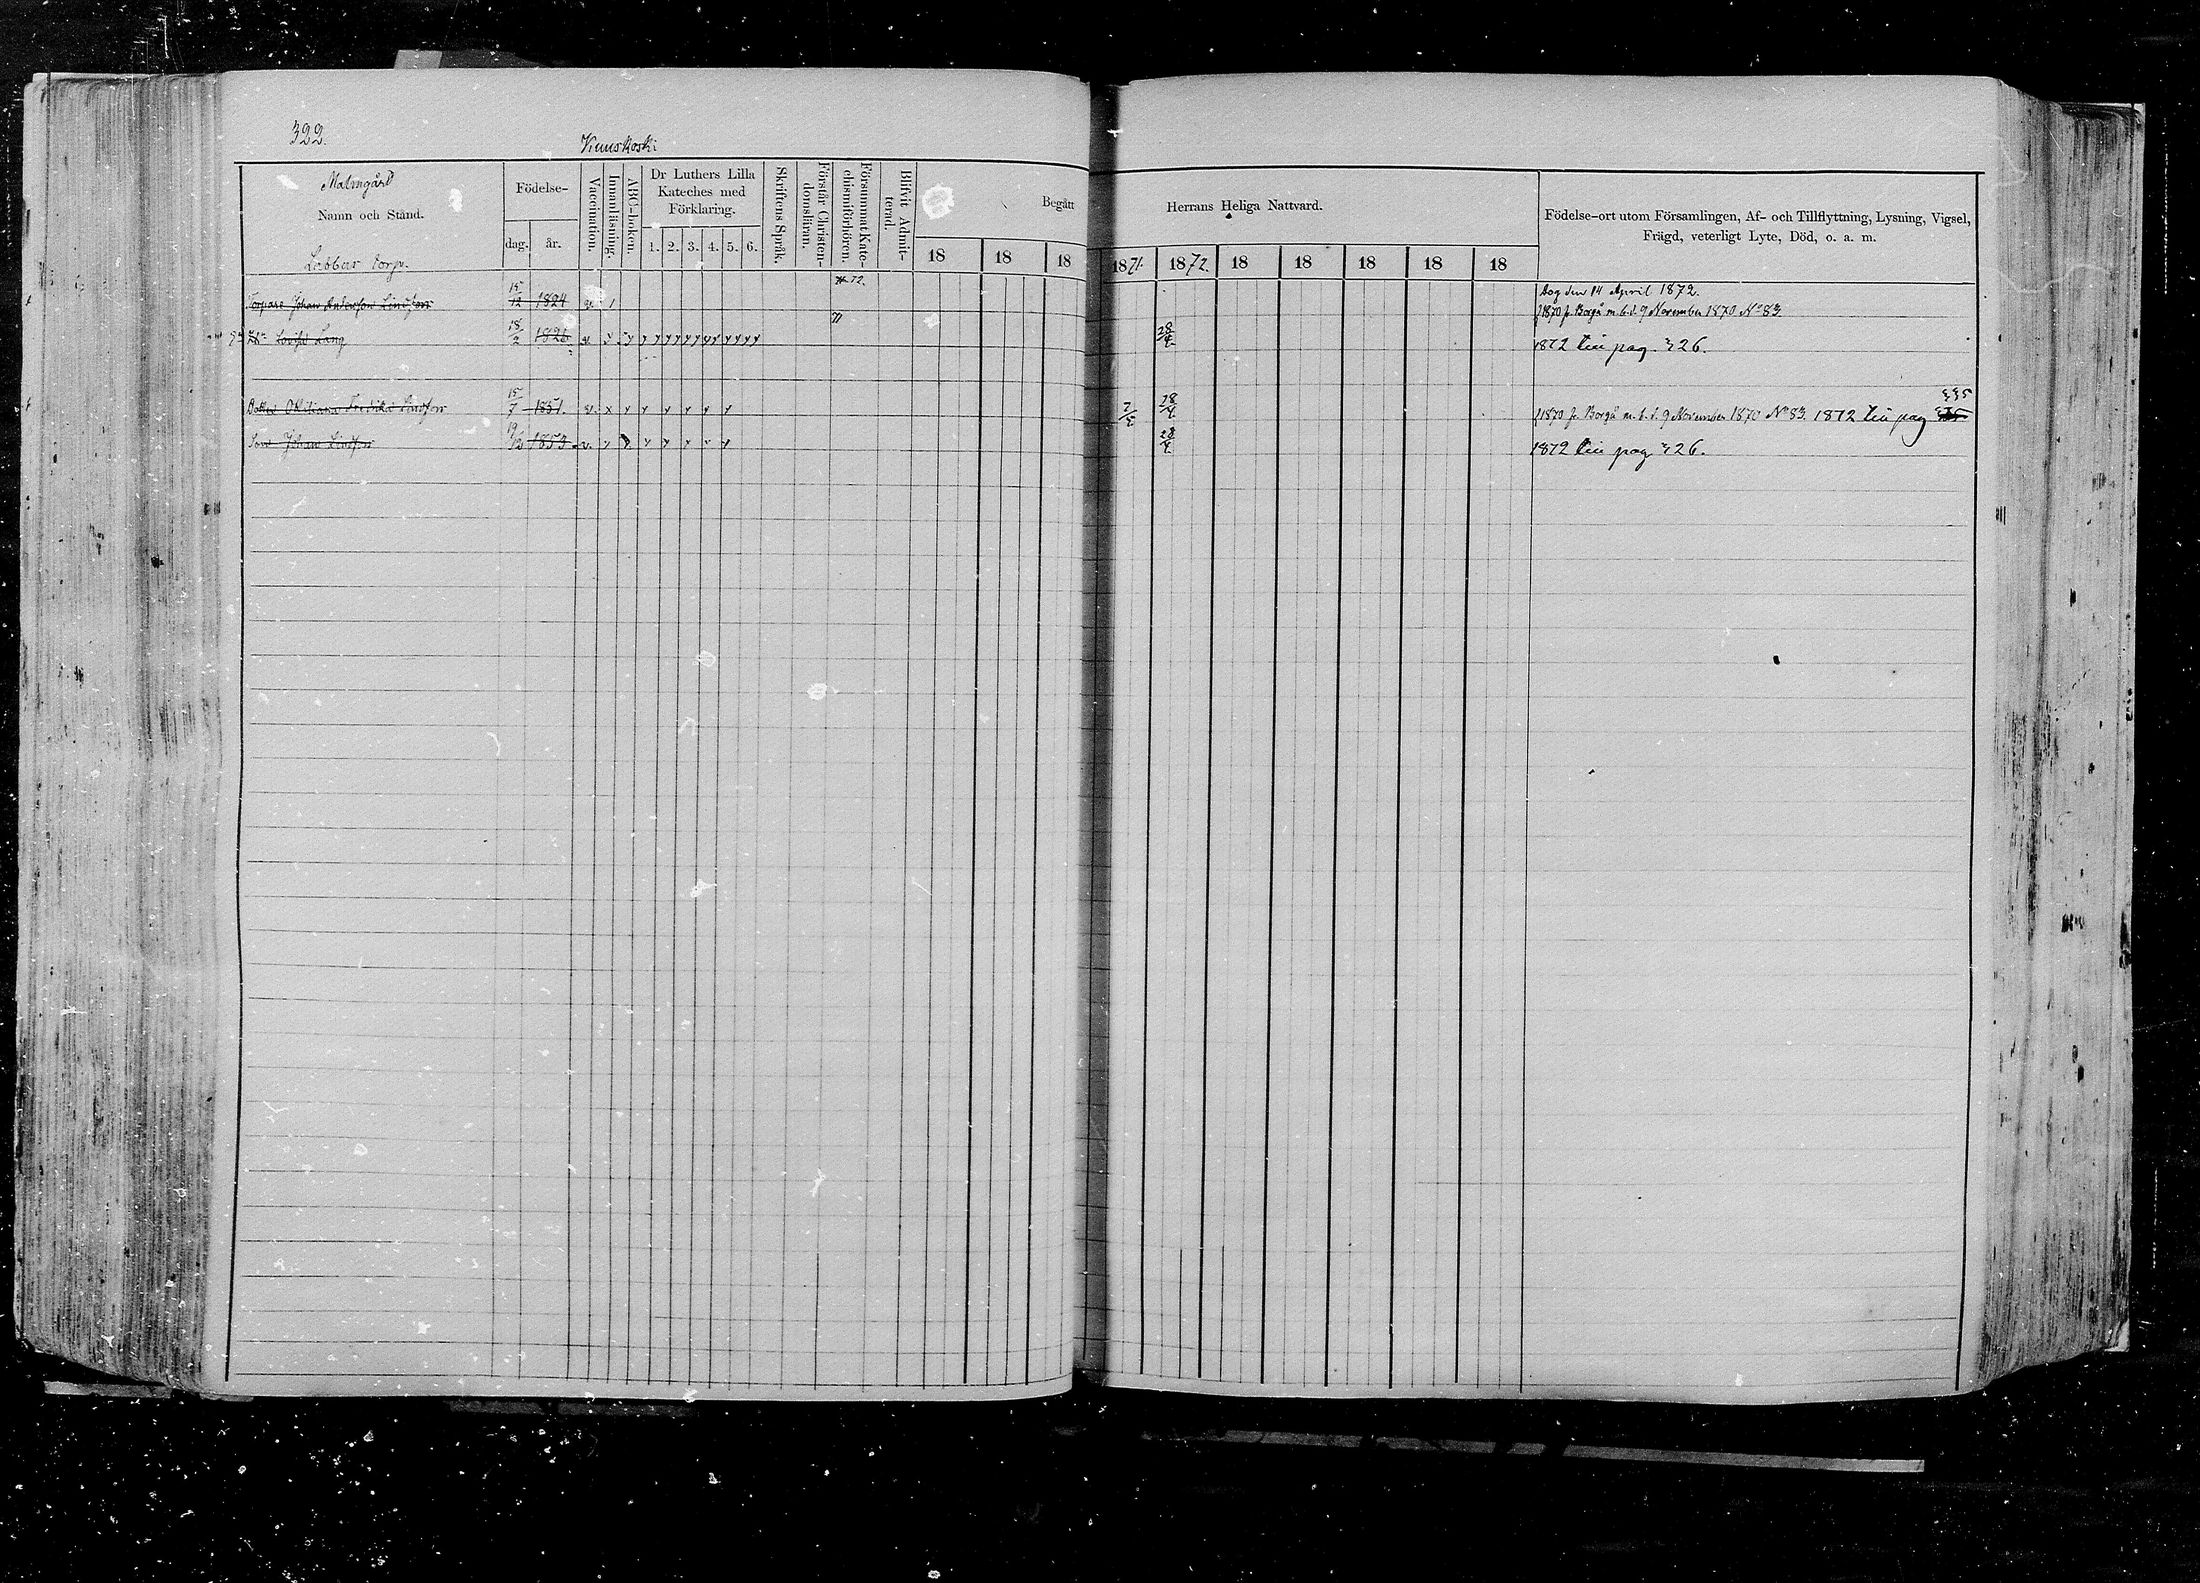 322.
Malmgård
Namn och Stånd.
Labbas torp.
Födelse-
dag. år.
Vaccination.
Innanläsning.
ABC-boken.
Dr Luthers Lilla
Kateches med
Förklaring.
1. 2. 3. 4. 5. 6.
Skriftens Språk.
Förstår Christen-
domsläran.
Försummat Kate-
chismiförhören.
Blifvit Admit-
terad.
Begått
18 18 18
Herrans Heliga Nattvard.
1871. 1872. 18 18 18 18 18
Födelse-ort utom Församlingen, Af- och Tillflyttning, Lysning, Vigsel,
Frägd, veterligt Lyte, Död, o. a. m.
Torpare Johan Andersson Lindfors 15/12 1824 v. Dog den 14 April 1872.
1870 fr. Borgå m. b. d. 9 November 1870 No 83.
Lovisa Lång 18/2 1826 v. 28/4 1872 till pag. 326.
335
Dotter Ottiliana Fredrika Lindfors 15/7 1851. v. x 28/4 1870 fr. Borgå m. b. d. 9 November 1870 No 83. 1872 till pag
Son Johan Lindfors 1853 v. 28/4 1872 till pag 326.